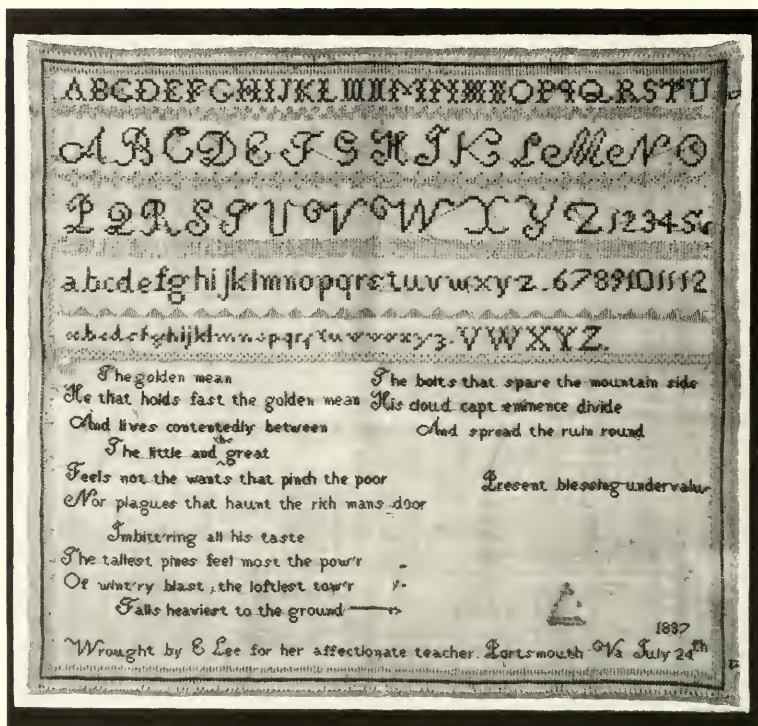 ABCDEFGHIJKLMNOPQRSTU
ABCDEFGHIJKLMNO
PQRSTUVWXYZ 123456
abcdefghijklmnopqrstuvwxyz. 6789101112
abcdefghijklmnopqrstuvwxyz. VWXYZ.
The golden mean
He that holds fast the golden mean
And lives contentedly between
The little and the great
Feels not the wants that pinch the poor
Nor plagues that haunt the rich mans door
Imbitt'ring all his taste
The tallest pines feel most the pow'r
Of wint'ry blast, the loftiest tow'r
Falls heaviest to the ground
The bolts that spare the mountain side
His cloud capt eminence divide
And spread the ruin round
Present blessing undervalu
1837
Wrought by E Lee for her affectionate teacher. Portsmouth Va July 24th